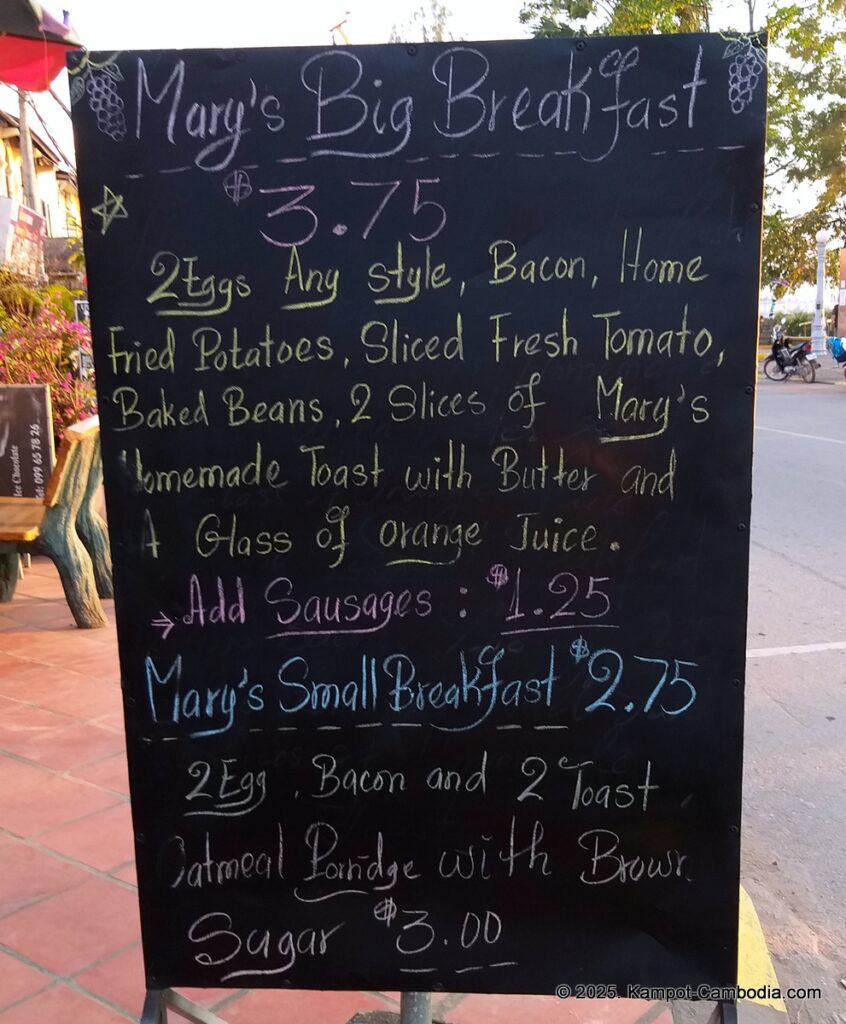 Mary's Big Breakfast
$3.75
2 Eggs Any style, Bacon, Home
Fried Potatoes, Sliced Fresh Tomato,
Baked Beans, 2 Slices of Mary's
Homemade Toast with Butter and
A Glass of orange Juice.
→ Add Sausages : $1.25
Mary's Small Breakfast $2.75
2 Egg, Bacon and 2 Toast
Oatmeal Porridge with Brown
Sugar $3.00
Ice Chocolate
Tel: 099 65 78 26
© 2025. Kampot-Cambodia.com